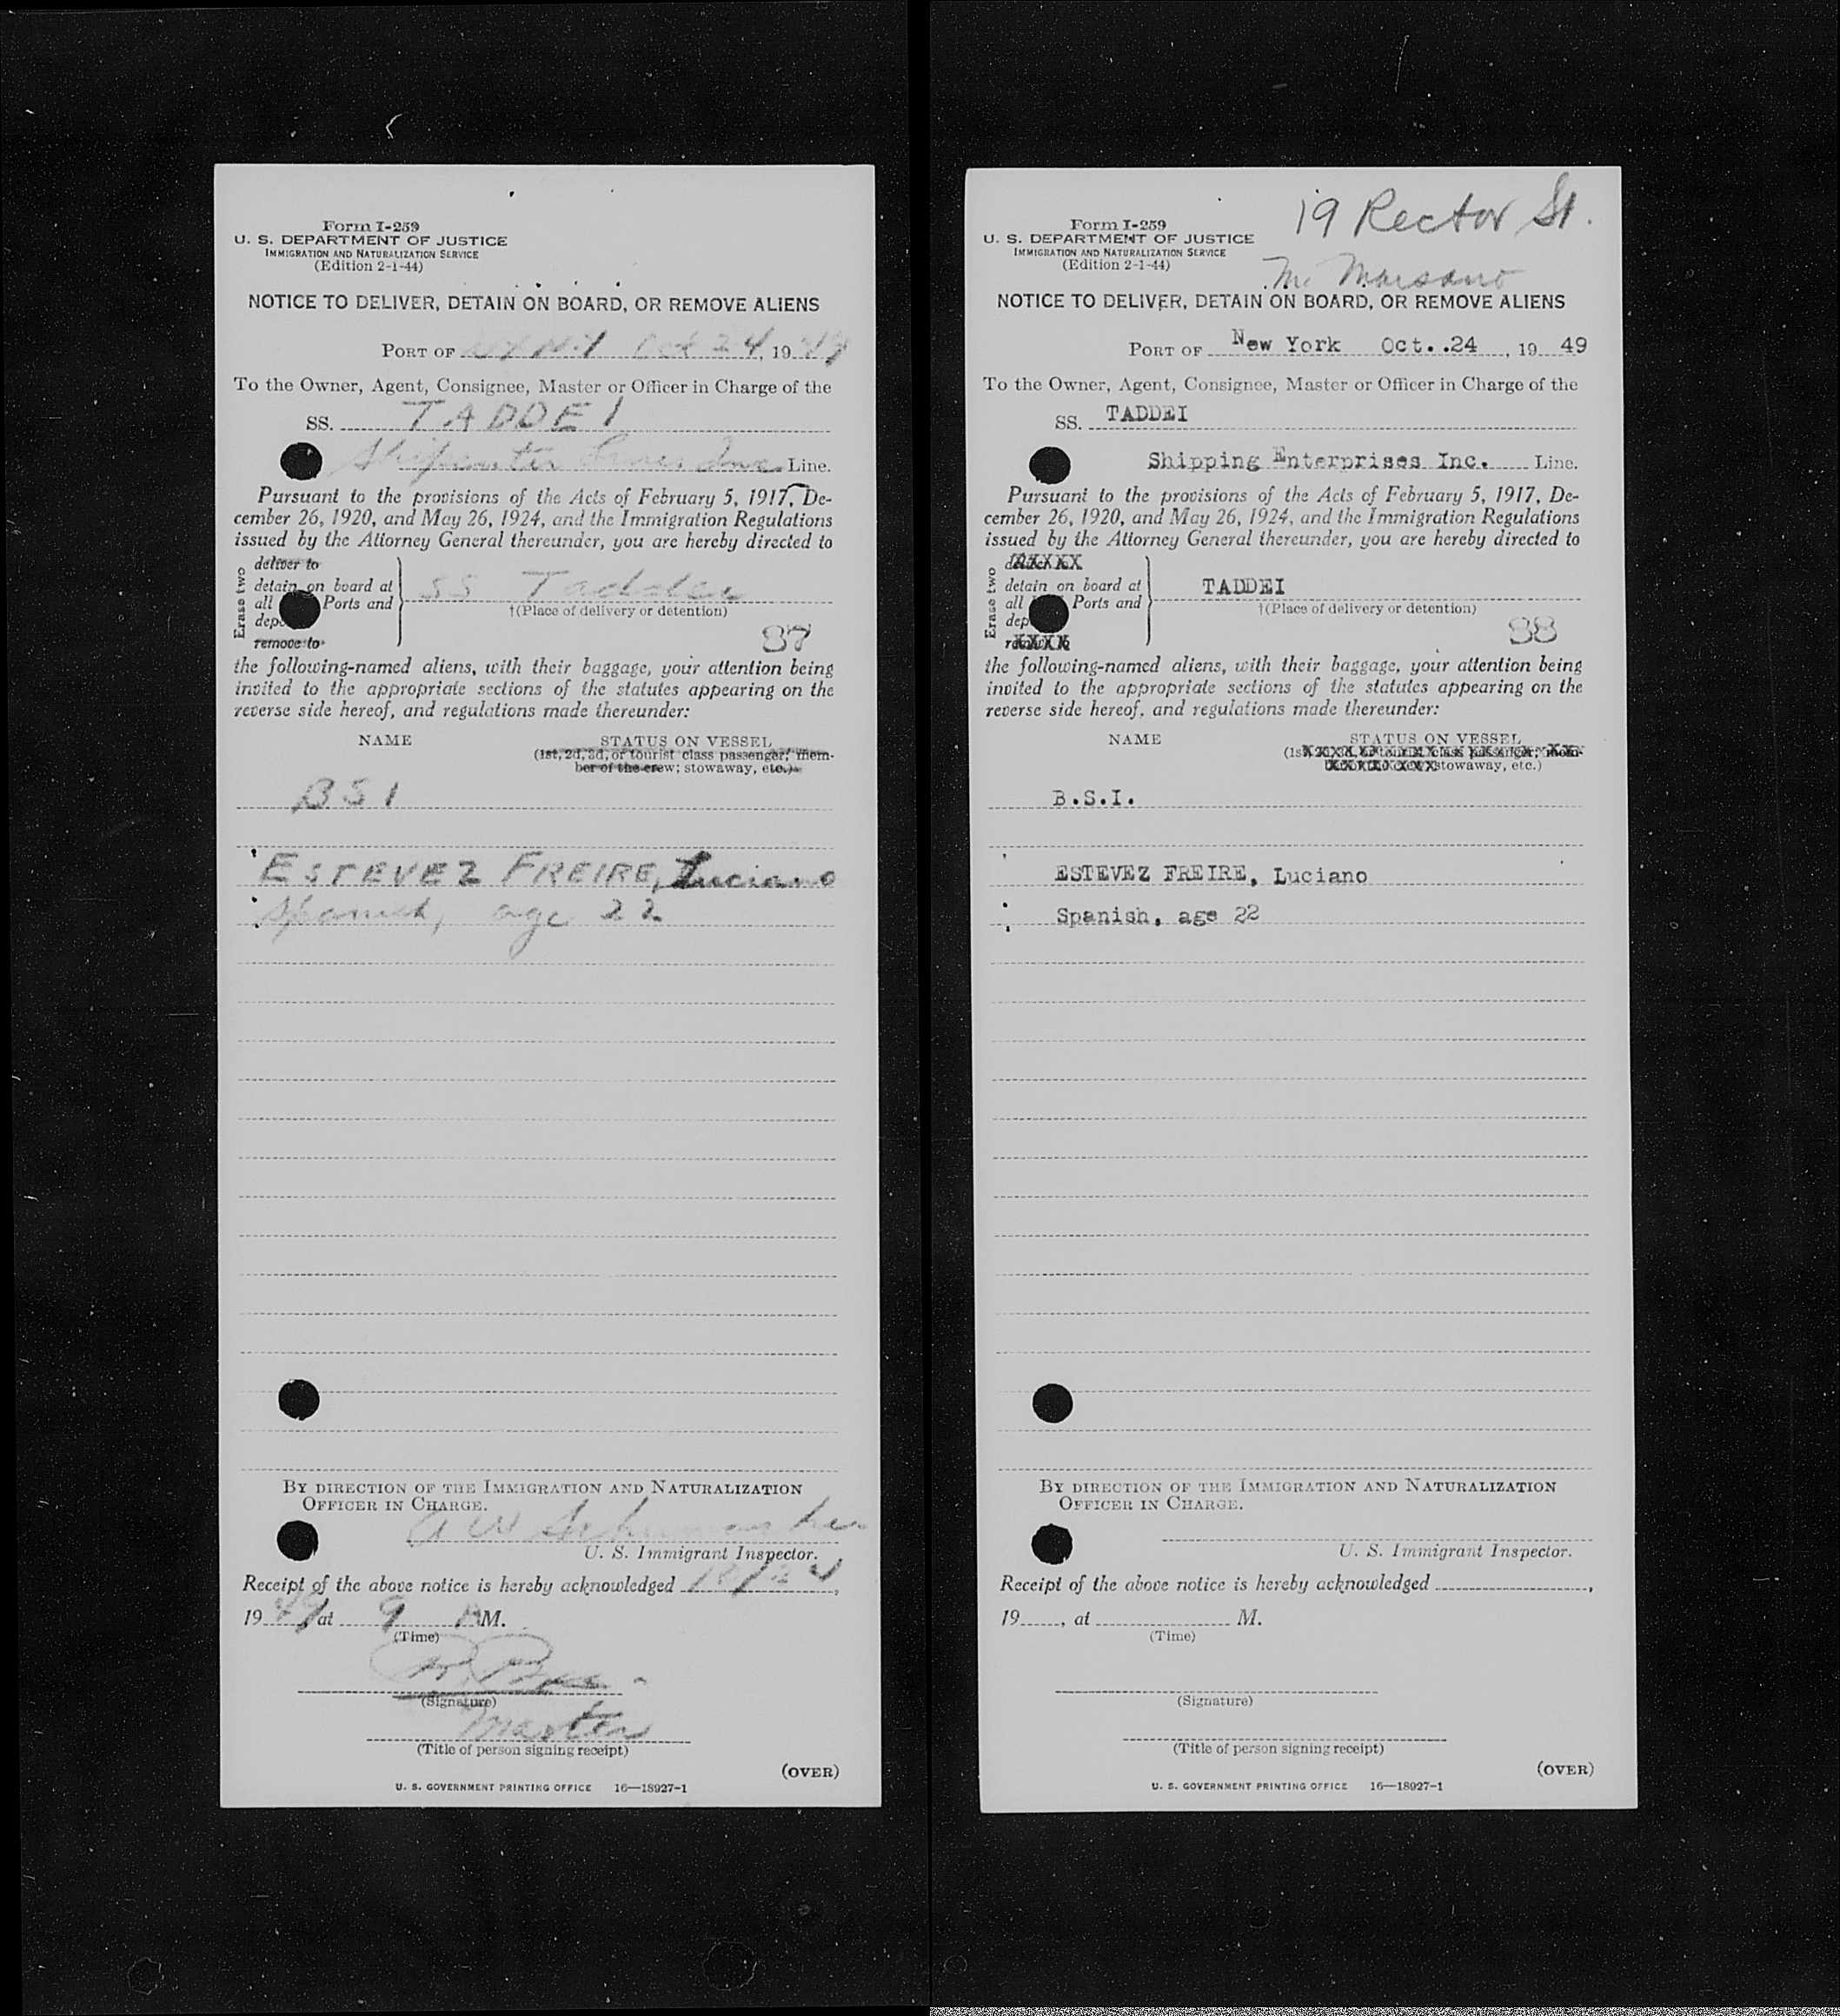 Form I-259
U. S. DEPARTMENT OF JUSTICE
IMMIGRATION AND NATURALIZATION SERVICE
(Edition 2-1-44)
NOTICE TO DELIVER, DETAIN ON BOARD, OR REMOVE ALIENS
PORT OF NY NY Oct 24, 1949
To the Owner, Agent, Consignee, Master or Officer in Charge of the
SS. TADDEI
Inc. Line.
Pursuant to the provisions of the Acts of February 5, 1917, De-
cember 26, 1920, and May 26, 1924, and the Immigration Regulations
issued by the Attorney General thereunder, you are hereby directed to
Erase two
deliver to
detain on board at
all Ports and
remove to
SS Taddei
†(Place of delivery or detention)
87
the following-named aliens, with their baggage, your attention being
invited to the appropriate sections of the statutes appearing on the
reverse side hereof, and regulations made thereunder:
NAME STATUS ON VESSEL
(1st, 2d, 3d, or tourist class passenger; mem-
ber of the crew; stowaway, etc.)
BSI
ESTEVEZ FREIRE, Luciano
Spanish, age 22
BY DIRECTION OF THE IMMIGRATION AND NATURALIZATION
OFFICER IN CHARGE.
A W Schumacher
U. S. Immigrant Inspector.
Receipt of the above notice is hereby acknowledged 10/24,
1949, at 9 AM.
(Time)
(Signature)
Master
(Title of person signing receipt)
(OVER)
U. S. GOVERNMENT PRINTING OFFICE 16—18927-1
19 Rector St.
Form I-259
U. S. DEPARTMENT OF JUSTICE
IMMIGRATION AND NATURALIZATION SERVICE
(Edition 2-1-44)
Mr. Marsano
NOTICE TO DELIVER, DETAIN ON BOARD, OR REMOVE ALIENS
PORT OF New York Oct. .24, 19 49
To the Owner, Agent, Consignee, Master or Officer in Charge of the
SS. TADDEI
Shipping Enterprises Inc. Line.
Pursuant to the provisions of the Acts of February 5, 1917, De-
cember 26, 1920, and May 26, 1924, and the Immigration Regulations
issued by the Attorney General thereunder, you are hereby directed to
Erase two
detain on board at
all Ports and
TADDEI
†(Place of delivery or detention)
88
the following-named aliens, with their baggage, your attention being
invited to the appropriate sections of the statutes appearing on the
reverse side hereof, and regulations made thereunder:
NAME STATUS ON VESSEL
stowaway, etc.)
B.S.I.
ESTEVEZ FREIRE, Luciano
Spanish, age 22
BY DIRECTION OF THE IMMIGRATION AND NATURALIZATION
OFFICER IN CHARGE.
U. S. Immigrant Inspector.
Receipt of the above notice is hereby acknowledged ,
19 , at M.
(Time)
(Signature)
(Title of person signing receipt)
(OVER)
U. S. GOVERNMENT PRINTING OFFICE 16—18927-1